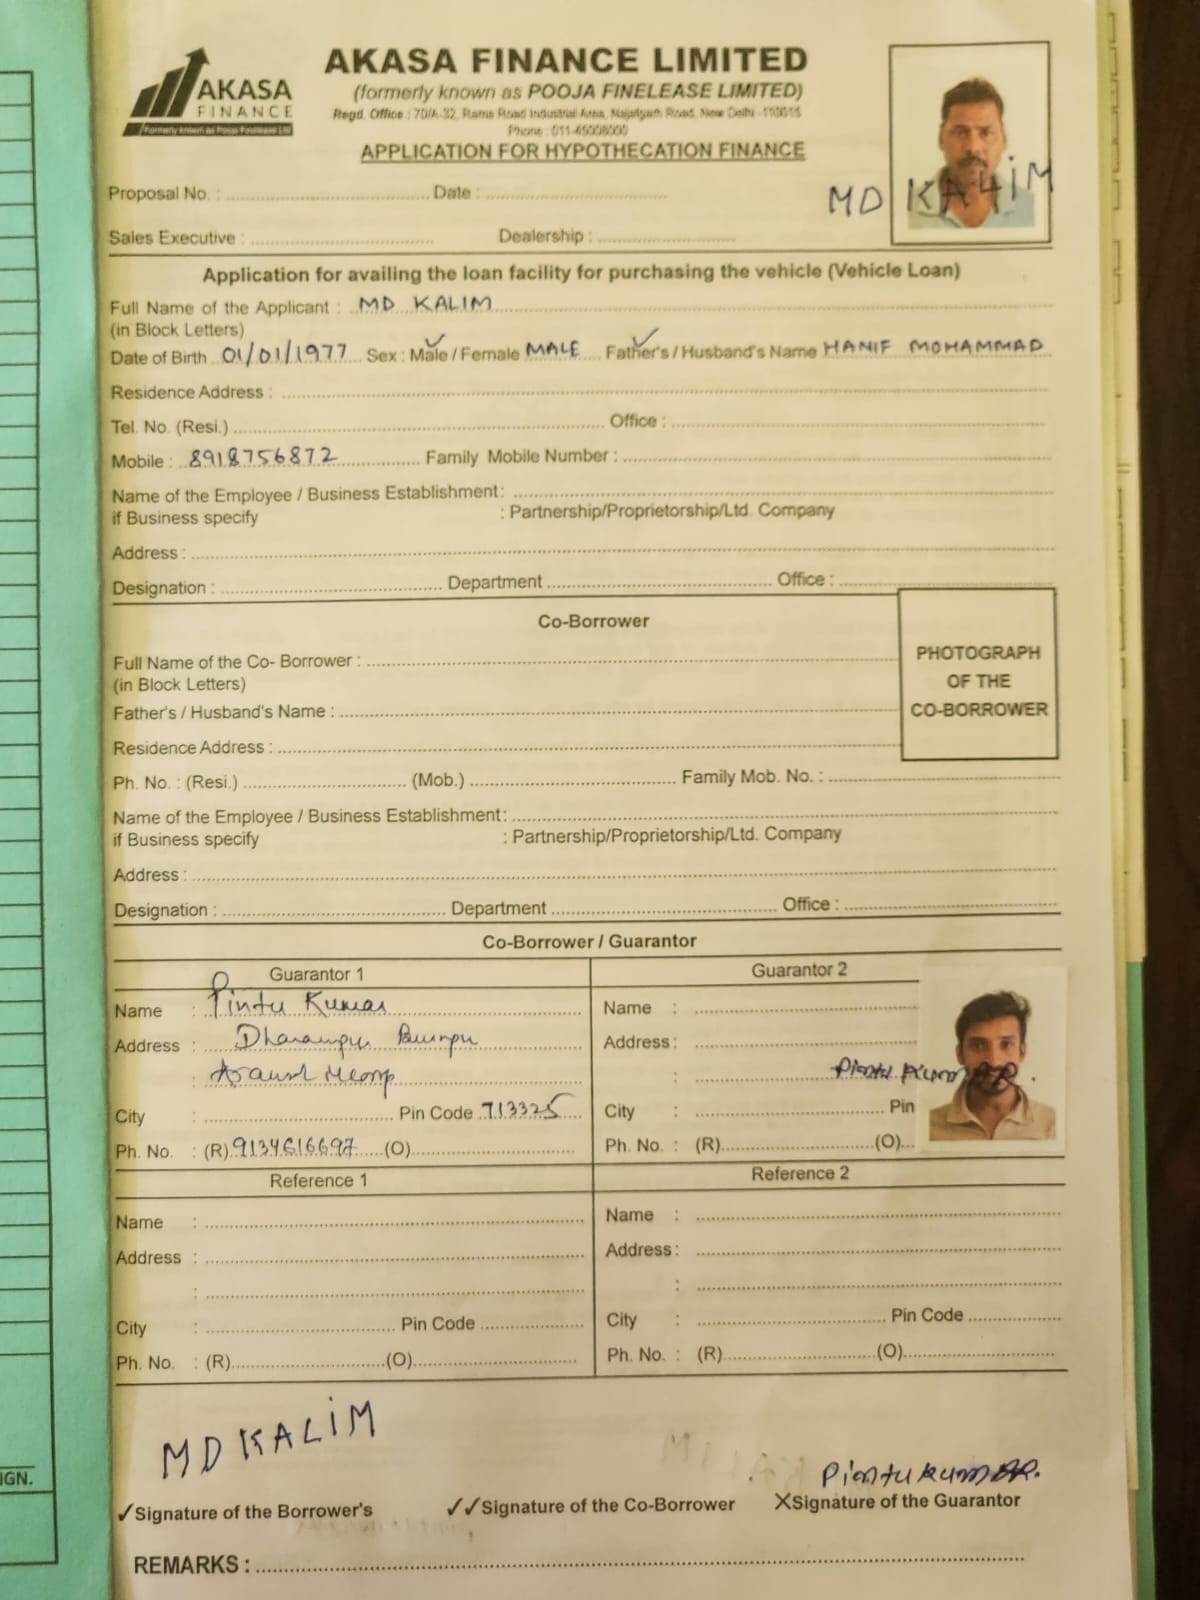 AKASA FINANCE LIMITED
AKASA
FINANCE
Formerly known as Pooja Finelease Ltd
(formerly known as POOJA FINELEASE LIMITED)
Regd. Office : 70/A-32, Rama Road Industrial Area, Najafgarh Road, New Delhi -110015
Phone : 011-45008000
APPLICATION FOR HYPOTHECATION FINANCE
MD KALIM
Proposal No. : Date :
Sales Executive : Dealership :
Application for availing the loan facility for purchasing the vehicle (Vehicle Loan)
Full Name of the Applicant : MD KALIM
(in Block Letters)
Date of Birth 01/01/1977 Sex : Male / Female MALE Father's / Husband's Name HANIF MOHAMMAD
Residence Address :
Tel. No. (Resi.) Office :
Mobile : 8918756872 Family Mobile Number :
Name of the Employee / Business Establishment:
if Business specify : Partnership/Proprietorship/Ltd. Company
Address :
Designation : Department Office :
Co-Borrower
PHOTOGRAPH
OF THE
CO-BORROWER
Full Name of the Co- Borrower :
(in Block Letters)
Father's / Husband's Name :
Residence Address :
Ph. No. : (Resi.) (Mob.) Family Mob. No. :
Name of the Employee / Business Establishment:
if Business specify : Partnership/Proprietorship/Ltd. Company
Address :
Designation : Department Office :
Co-Borrower / Guarantor
Guarantor 1
Name : Pintu Kumar
Address :
:
City : Pin Code 713325
Ph. No. : (R) 9134616697 (O)
Guarantor 2
Name :
Address :
: Pintu KumAR.
City : Pin
Ph. No. : (R) (O)
Reference 1
Name :
Address :
:
City : Pin Code
Ph. No. : (R) (O)
Reference 2
Name :
Address :
:
City : Pin Code
Ph. No. : (R) (O)
MD KALIM
Pintu kumAR.
✓Signature of the Borrower's ✓✓Signature of the Co-Borrower XSignature of the Guarantor
REMARKS :
IGN.